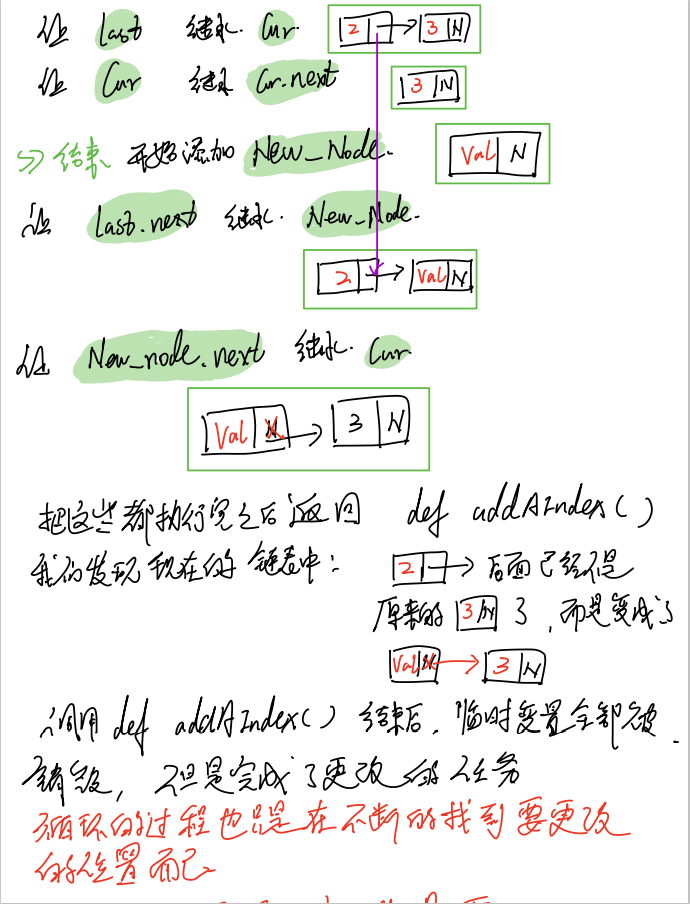 让 Last 继承 Cur. 2 3 N
让 Cur 继承 Cur.next 3 N
=> 结束 开始添加 New_Node. Val N
让 Last.next 继承. New_Node.
2 Val N
让 New_node.next 继承 Cur
Val N 3 N
把这些都执行完之后返回 def addAIndex()
我们发现现在的链表中: 2 后面已经不是
原来的 3 N 了, 而是变成了
Val N 3 N
调用 def addAIndex() 结束后, 临时变量全部被
销毁, 但是完成了更改的任务
循环的过程也只是在不断的找到要更改
的位置而已